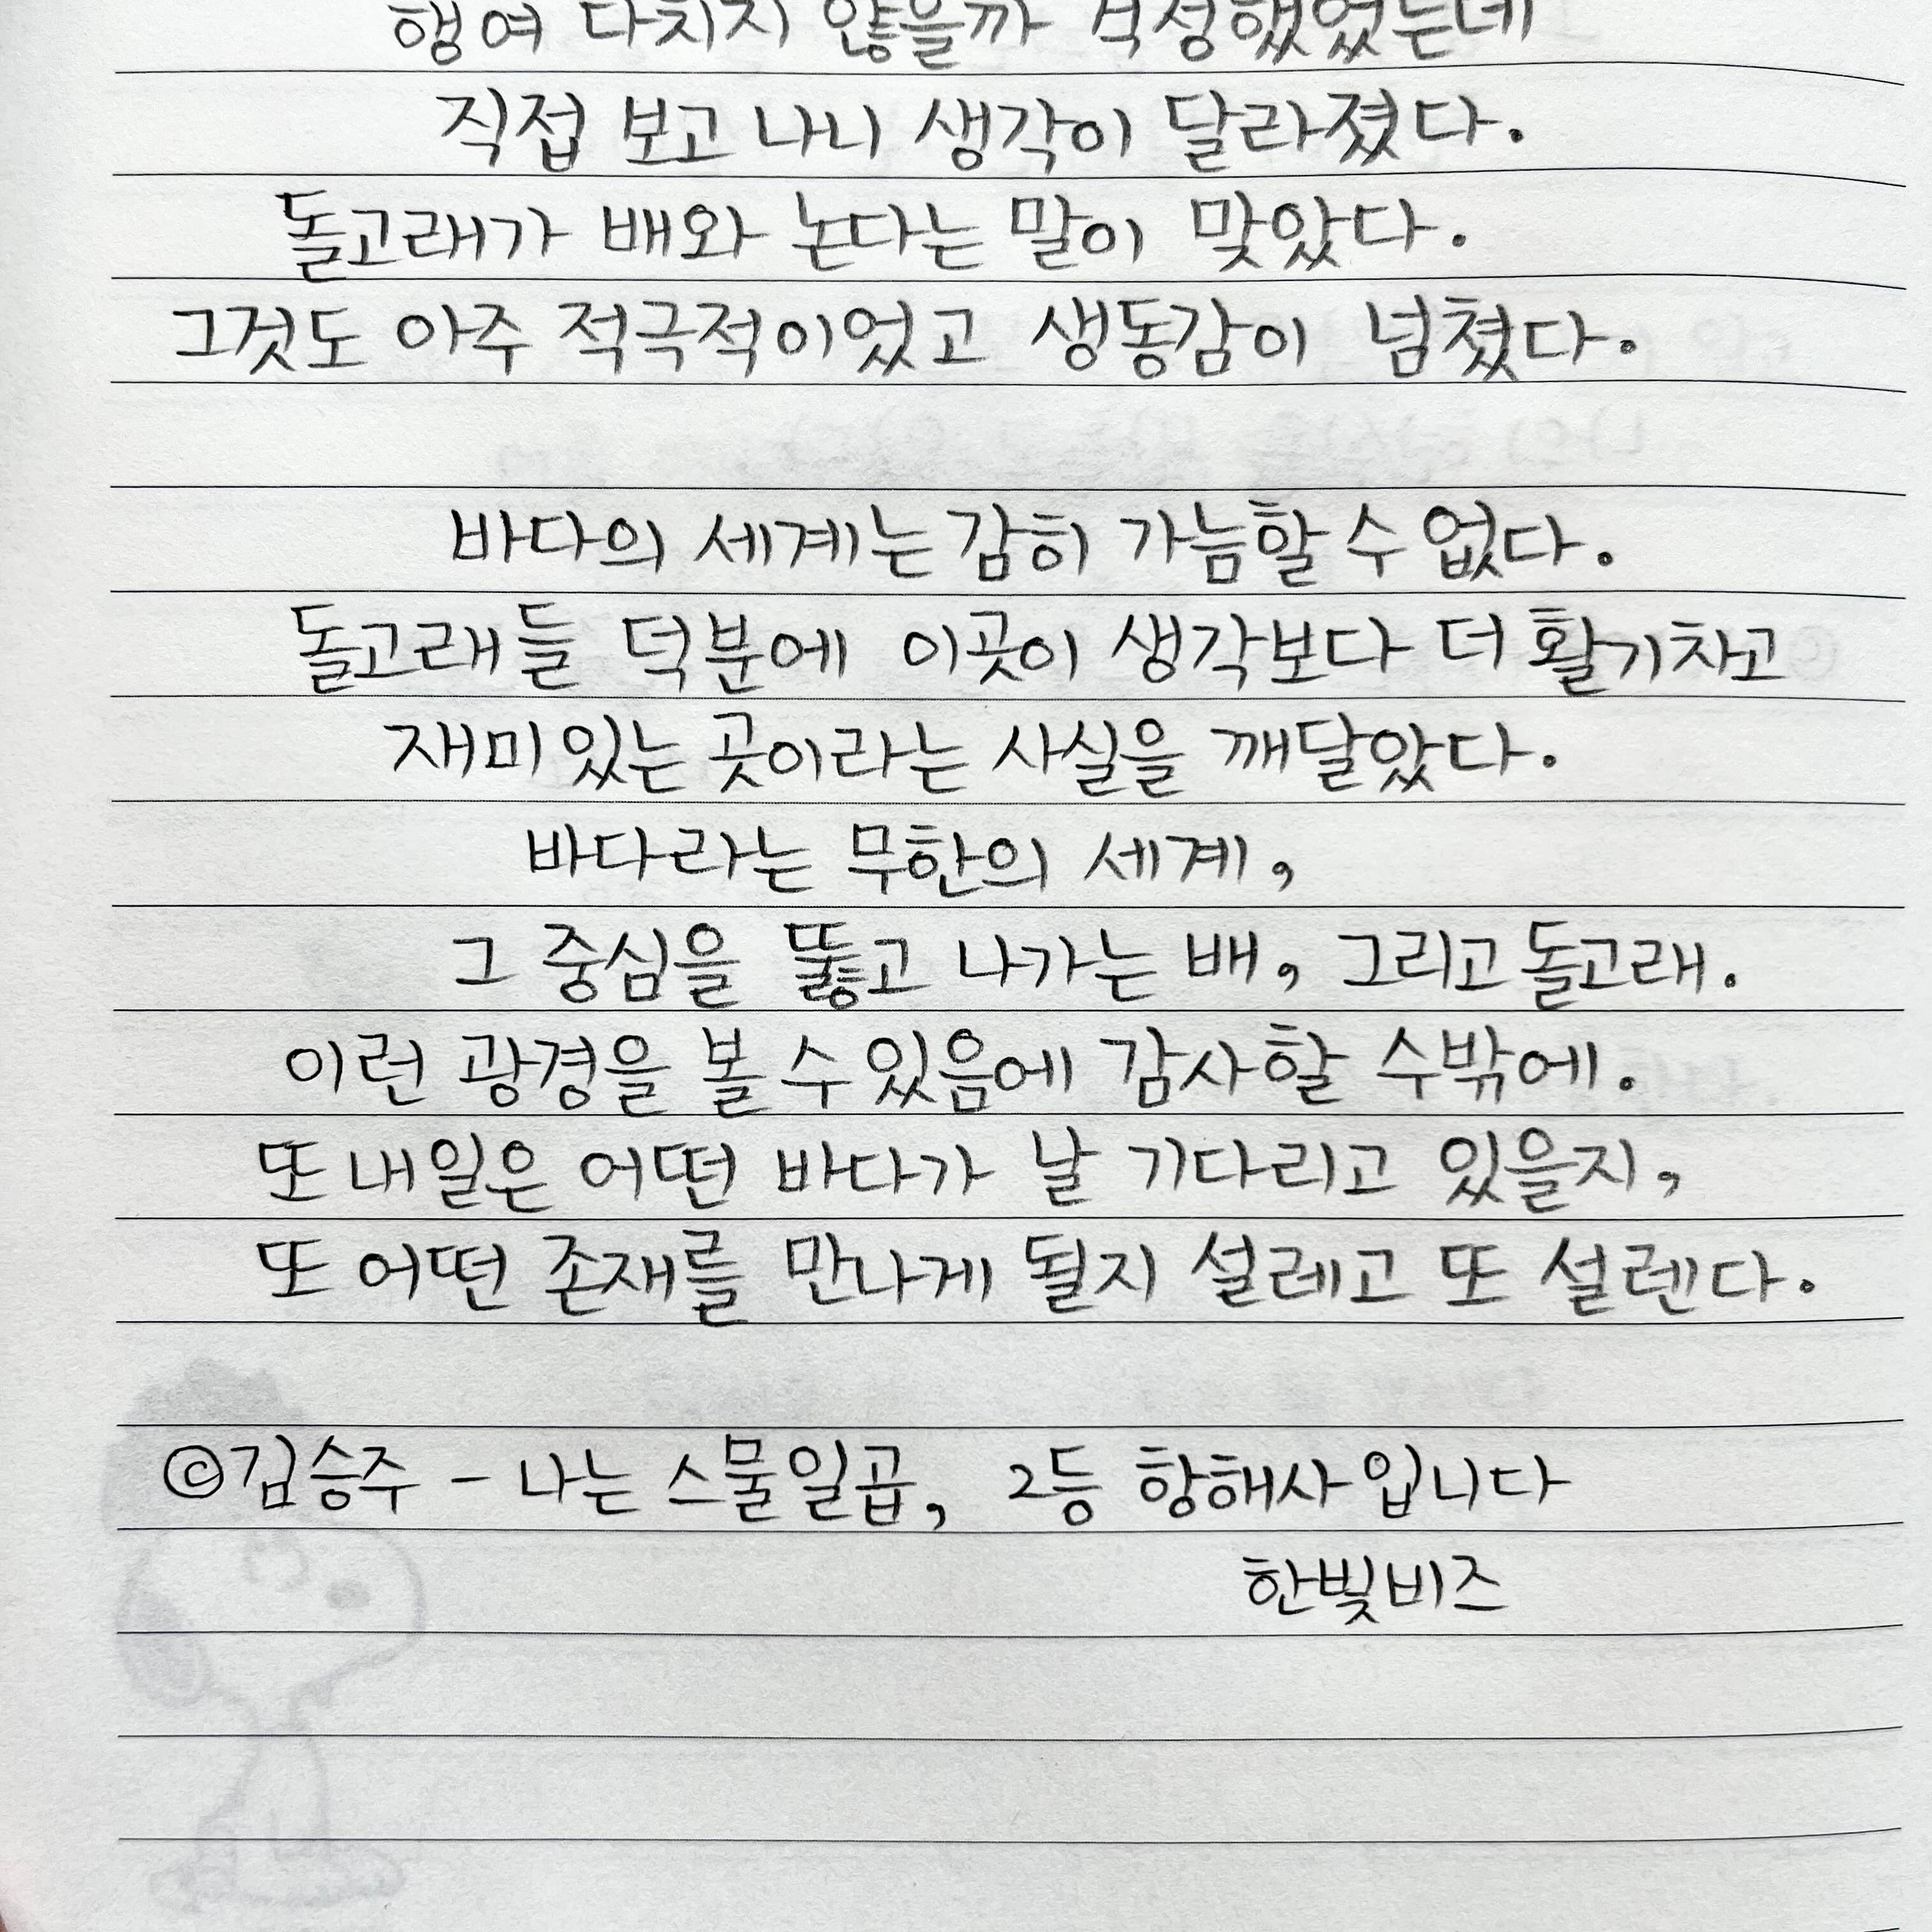 행여 다치지 않을까 걱정했었는데
직접 보고 나니 생각이 달라졌다.
돌고래가 배와 논다는 말이 맞았다.
그것도 아주 적극적이었고 생동감이 넘쳤다.
바다의 세계는 감히 가늠할 수 없다.
돌고래들 덕분에 이곳이 생각보다 더 활기차고
재미있는 곳이라는 사실을 깨달았다.
바다라는 무한의 세계,
그 중심을 뚫고 나가는 배, 그리고 돌고래.
이런 광경을 볼 수 있음에 감사할 수밖에.
또 내일은 어떤 바다가 날 기다리고 있을지,
또 어떤 존재를 만나게 될지 설레고 또 설렌다.
©김승주 - 나는 스물일곱, 2등 항해사입니다
한빛비즈